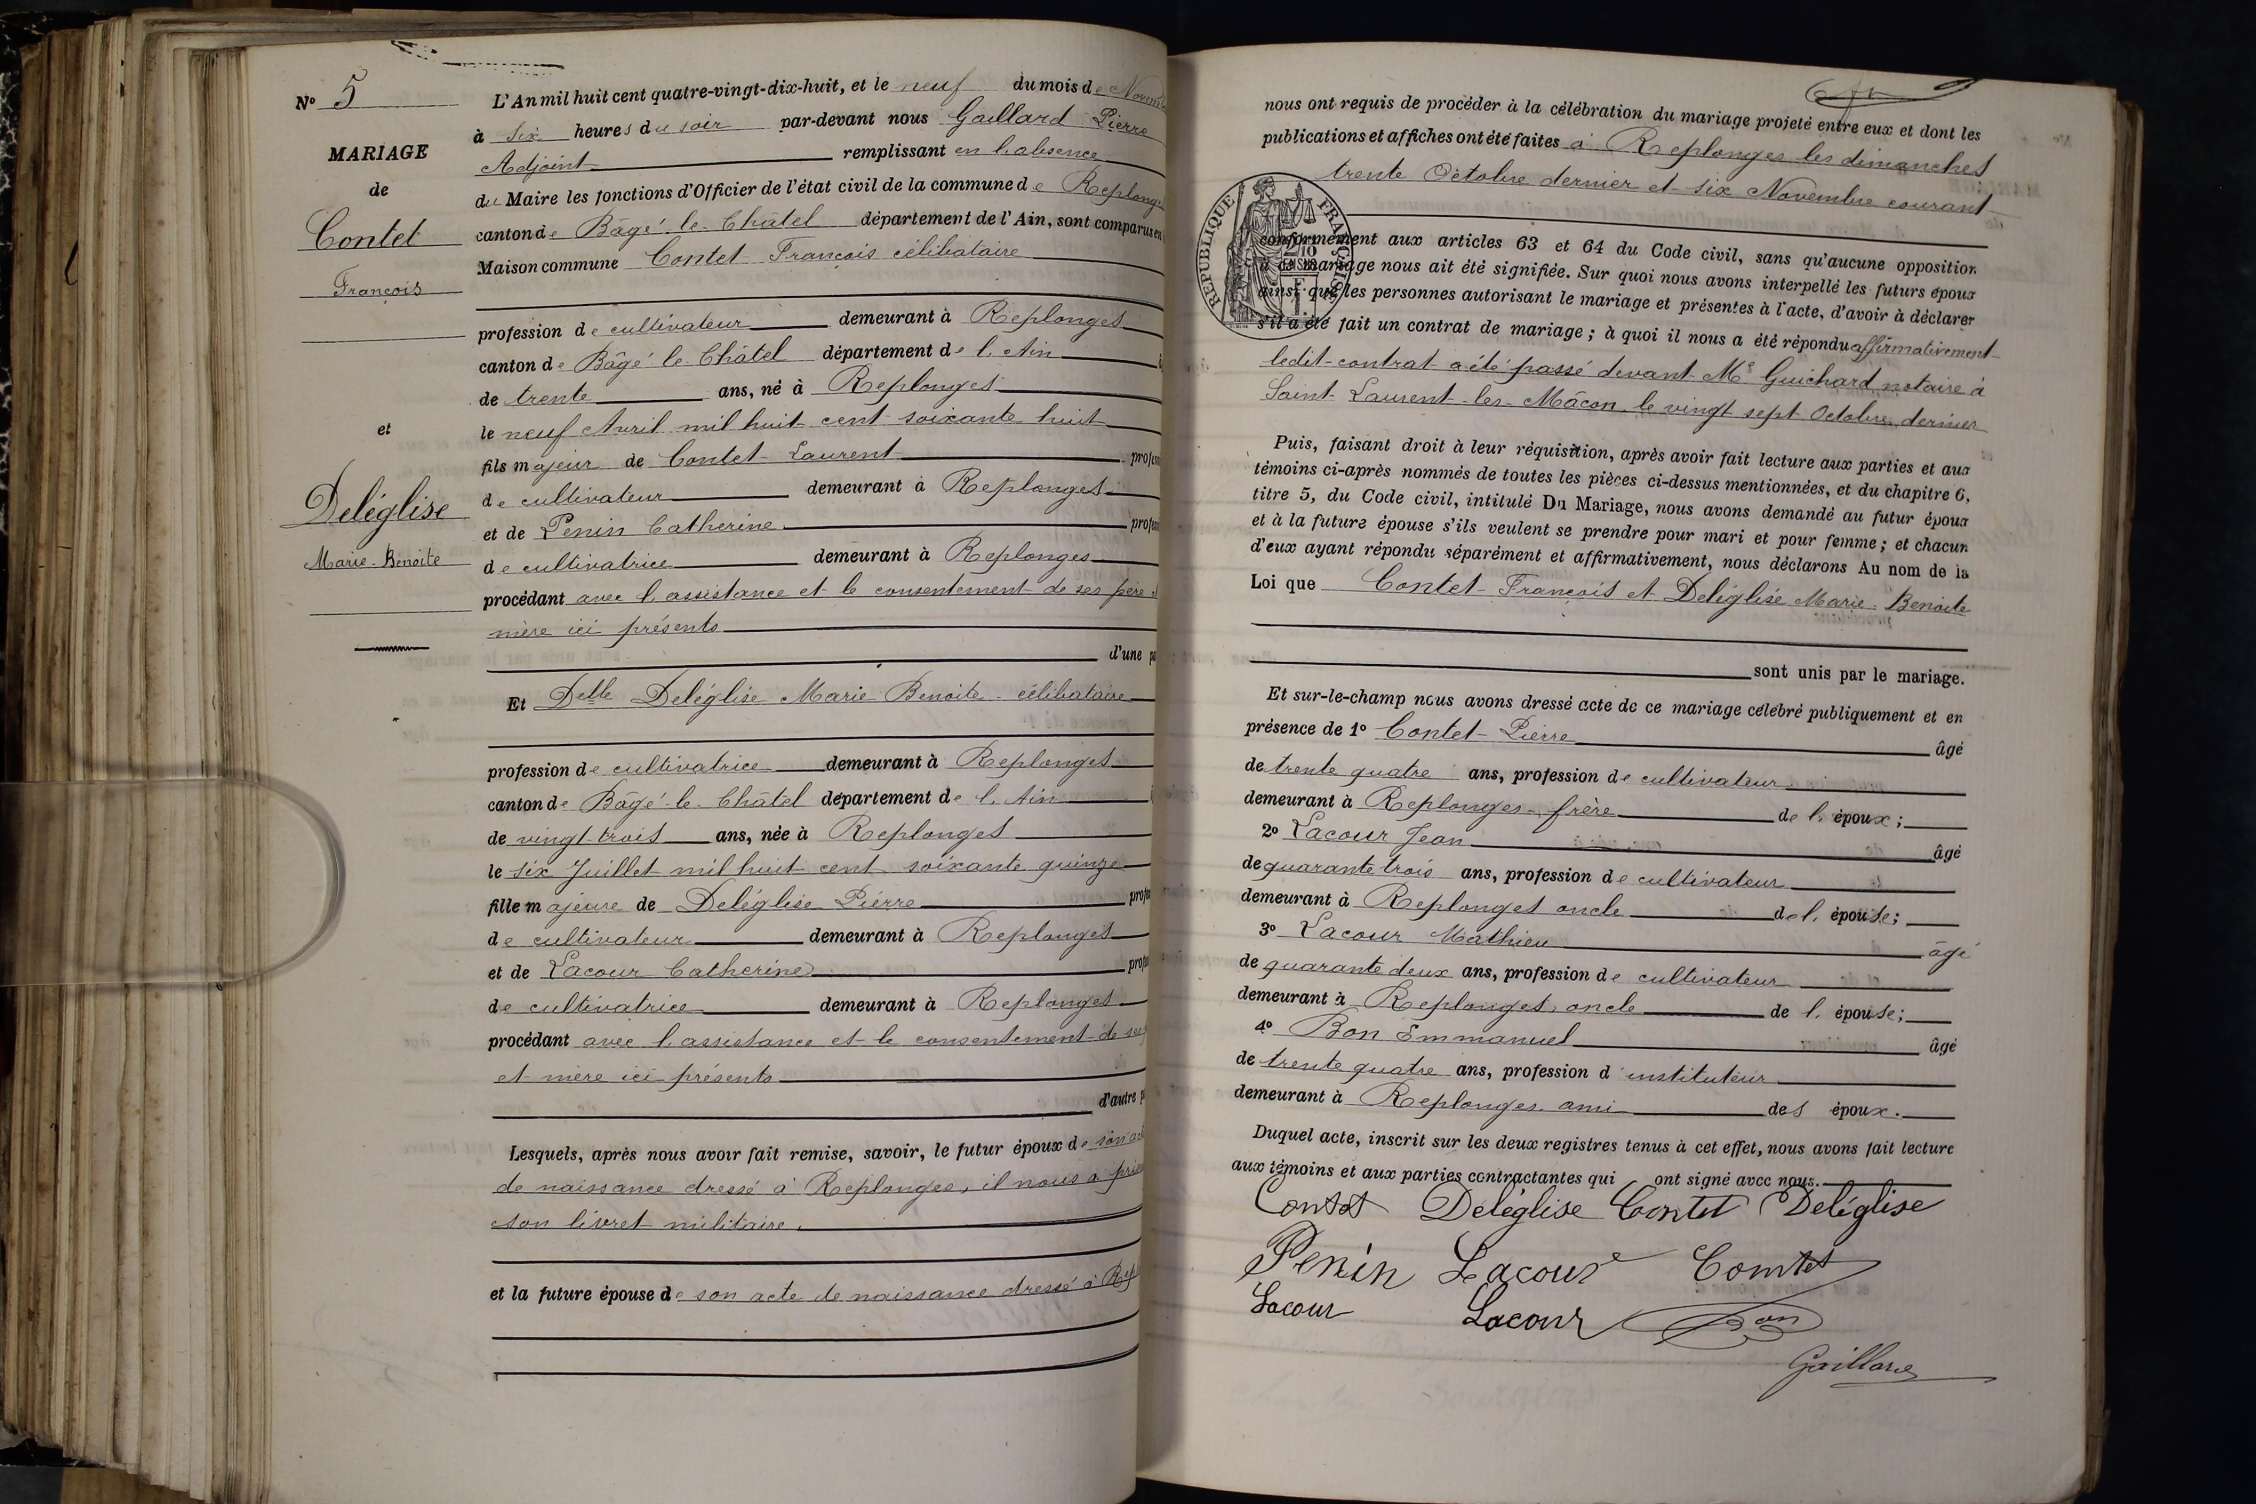 N° 5
MARIAGE
de
Contet
François
et
Deléglise
Marie-Benoite
L'An mil huit cent quatre-vingt-dix-huit, et le neuf du mois de Novem
à six heures du soir par-devant nous Gaillard Pierre
Adjoint remplissant en l'absence
du Maire les fonctions d'Officier de l'état civil de la commune de Replong
canton de Bâgé-le-Châtel département de l'Ain, sont comparus en
Maison commune Contet François célibataire
profession de cultivateur demeurant à Replonges
canton de Bâgé-le-Châtel département de l'Ain
de trente ans, né à Replonges
le neuf Avril mil huit cent soixante huit
fils majeur de Contet Laurent profes
de cultivateur demeurant à Replonges
et de Penin Catherine profes
de cultivatrice demeurant à Replonges
procédant avec l'assistance et le consentement de ses père
mère ici présents
d'une pa
Et Delle Deléglise Marie-Benoite célibataire
profession de cultivatrice demeurant à Replonges
canton de Bâgé-le-Châtel département de l'Ain
de vingt-trois ans, née à Replonges
le six Juillet mil huit cent soixante quinze
fille majeure de Deléglise Pierre profes
de cultivateur demeurant à Replonges
et de Lacour Catherine profes
de cultivatrice demeurant à Replonges
procédant avec l'assistance et le consentement de ses
et mère ici présents
d'autre p
Lesquels, après nous avoir fait remise, savoir, le futur époux de son ac
de naissance dressé à Replonges, il nous a prés
son livret militaire.
et la future épouse de son acte de naissance dressé à Repl
nous ont requis de procéder à la célébration du mariage projeté entre eux et dont les
publications et affiches ont été faites à Replonges les dimanches
trente Octobre dernier et six Novembre courant
RÉPUBLIQUE FRANÇAISE
conformément aux articles 63 et 64 du Code civil, sans qu'aucune opposition
à ce mariage nous ait été signifiée. Sur quoi nous avons interpellé les futurs époux
ainsi que les personnes autorisant le mariage et présentes à l'acte, d'avoir à déclarer
s'il a été fait un contrat de mariage ; à quoi il nous a été répondu affirmativement
ledit contrat a été passé devant Me Guichard notaire à
Saint-Laurent-les-Mâcon le vingt sept Octobre dernier
Puis, faisant droit à leur réquisition, après avoir fait lecture aux parties et aux
témoins ci-après nommés de toutes les pièces ci-dessus mentionnées, et du chapitre 6,
titre 5, du Code civil, intitulé Du Mariage, nous avons demandé au futur époux
et à la future épouse s'ils veulent se prendre pour mari et pour femme ; et chacun
d'eux ayant répondu séparément et affirmativement, nous déclarons Au nom de la
Loi que Contet François et Deléglise Marie-Benoite
sont unis par le mariage.
Et sur-le-champ nous avons dressé acte de ce mariage célébré publiquement et en
présence de 1° Contet Pierre âgé
de trente quatre ans, profession de cultivateur
demeurant à Replonges frère de l'époux ;
2° Lacour Jean âgé
de quarante trois ans, profession de cultivateur
demeurant à Replonges oncle de l'épouse ;
3° Lacour Mathieu âgé
de quarante deux ans, profession de cultivateur
demeurant à Replonges, oncle de l'épouse ;
4° Bon Emmanuel âgé
de trente quatre ans, profession d'instituteur
demeurant à Replonges ami des époux.
Duquel acte, inscrit sur les deux registres tenus à cet effet, nous avons fait lecture
aux témoins et aux parties contractantes qui ont signé avec nous.
Contet Deléglise Contet Deléglise
Penin Lacour Contet
Lacour Lacour Bon
Gaillard